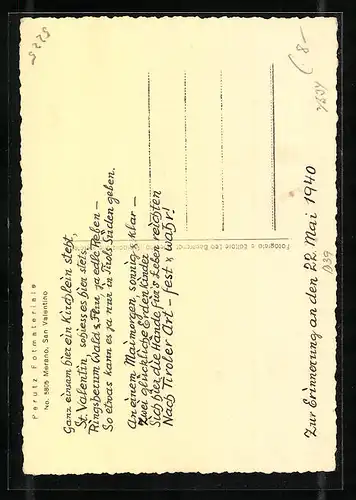 Perutz Fotmateriale
No. 5805 Merano, San Valentino
Ganz einsam hier ein Kirchlein steht,
St. Valentin, so hiess es hier stets,
Ringsherum Wald & Flur, ja edle Reben –
So etwas kann es ja nur in Tirols Süden geben.
An einem Maimorgen, sonnig & klar –
Zwei glückliche Erdenkinder
Sich hier die Hände fürs Leben reichten
Nach Tiroler Art – fest & wahr!
Zur Erinnerung an den 22. Mai 1940
5225
8–